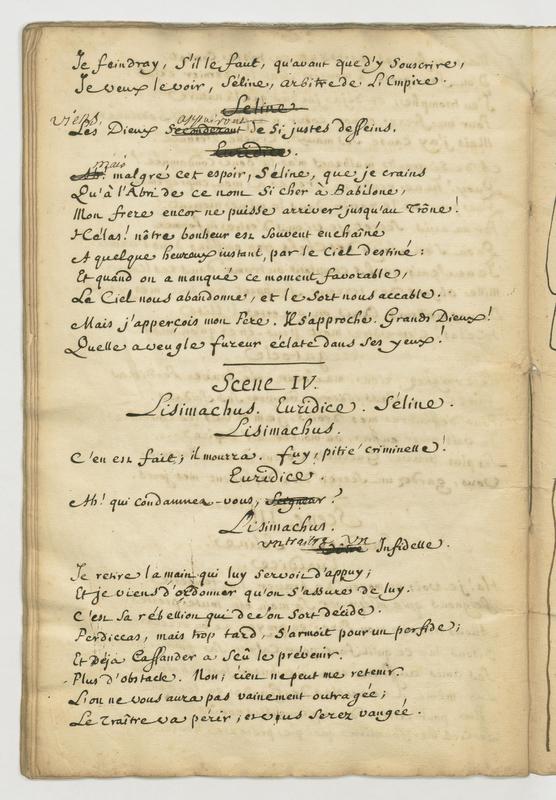 Je feindray, S'il le faut, qu'avant que d'y Souscrire,
Je veux le voir, Séline, arbitre de L'Empire.
Séline
viens,
appuiront
Les Dieux Seconderont de Si justes desseins.
Euridice.
mais
Ah! malgré cet espoir, Séline, que je crains
Qu'à l'Abri de ce nom Si cher à Babilone,
Mon frere encor ne puisse arriver jusqu'au Trône!
Hélas! nôtre bonheur est Souvent enchaîné
A quelque heureux instant, par le Ciel destiné:
Et quand on a manqué ce moment favorable,
Le Ciel nous abandonne, et le Sort nous accable.
Mais j'apperçois mon Pere. Il s'approche. Grands Dieux!
Quelle aveugle fureur éclate dans Ses yeux!
Scene IV.
Lisimachus. Euridice. Séline.
Lisimachus.
C'en est fait; il mourra. fuy, pitié criminelle!
Euridice.
Ah! qui condamnez-vous, Seigneur?
Lisimachus.
un traitre, un
Infidelle.
Je retire la main qui luy Servoit d'appuy;
Et je viens d'ordonner qu'on S'assure de luy.
C'est Sa rébellion qui de Son Sort décide.
Perdiccas, mais trop tard, S'armoit pour un perfide;
Et Déja Cassander a Sçû le prévenir.
Plus d'obstacle. Non; rien ne peut me retenir.
L'on ne vous aura pas vainement outragée;
Le Traître va périr; et vous Serez vangée.